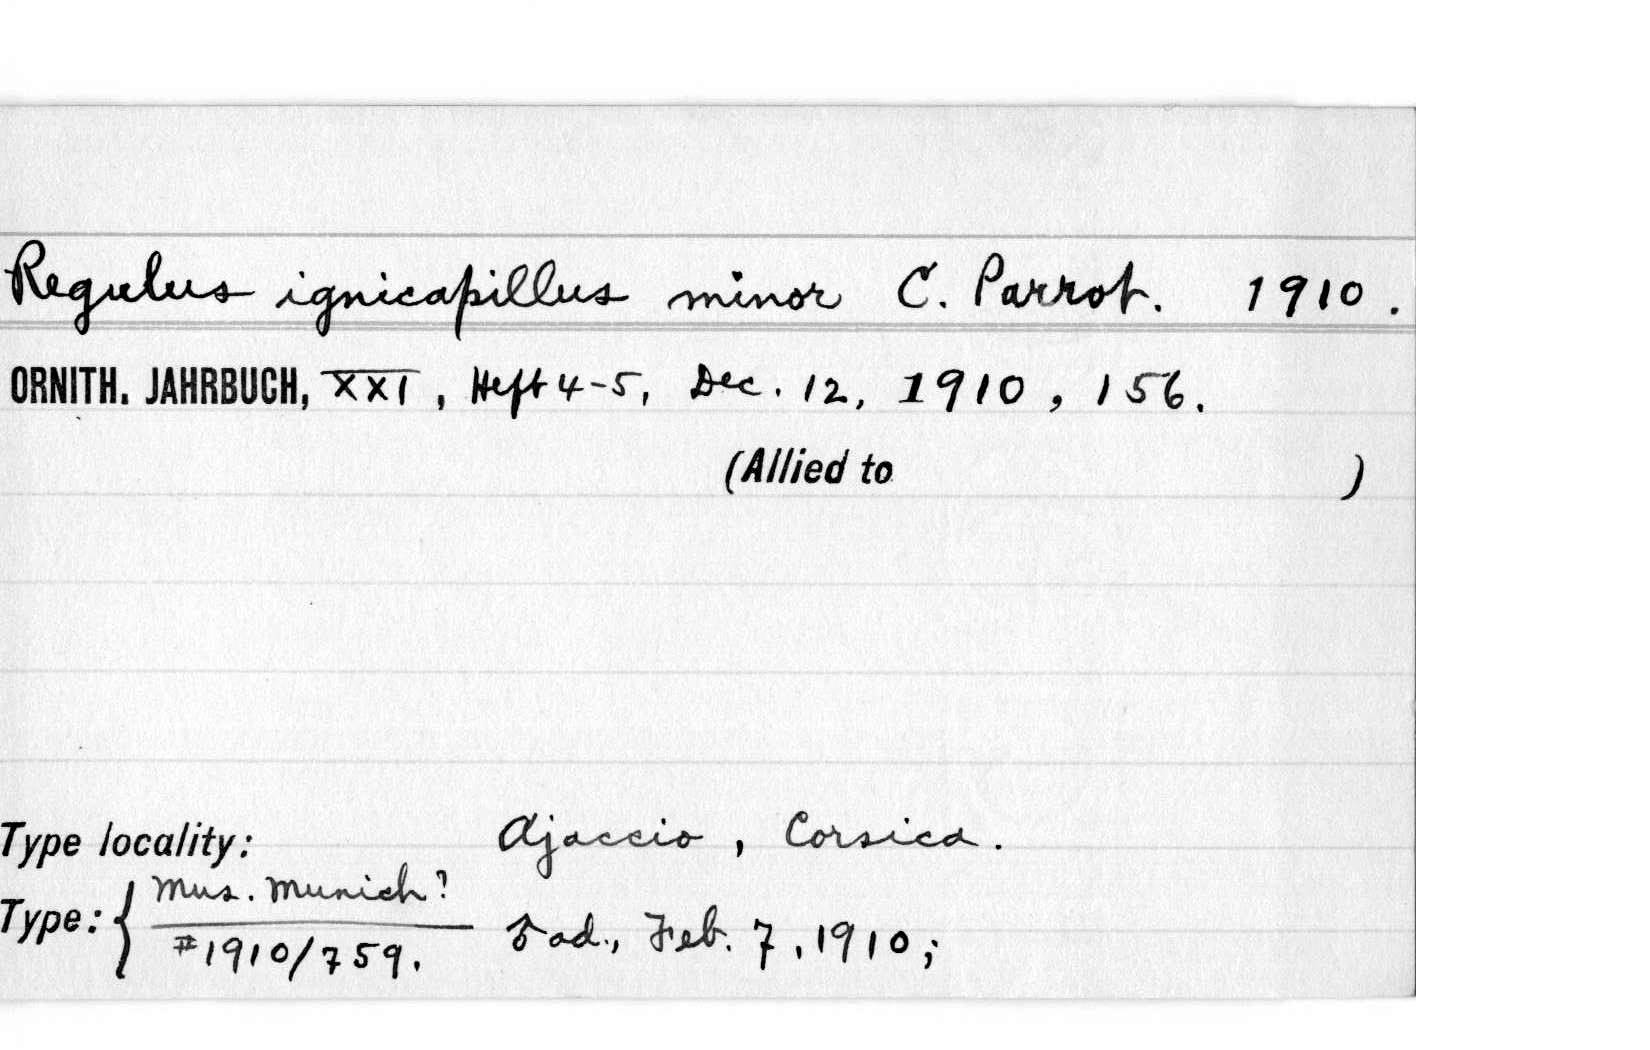 Regulus ignicapillus minor C. Parrot. 1910.
ORNITH. JAHRBUCH, XXI, Heft 4-5, Dec. 12, 1910, 156.
(Allied to )
Type locality: Ajaccio, Corsica.
Type: { Mus. Munich?
#1910/759. ♂ ad., Feb. 7, 1910;